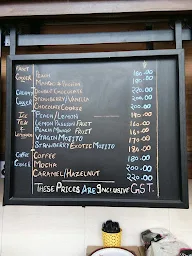 FRUIT PEACH 160.00
COOLER MANGO & PASSION 180.00
CREAMY DOUBLE CHOCOLATE 220.00
COOLER STRAWBERRY/VANILLA 200.00
CHOCOLATE COOKIE 220.00
ICE PEACH/LEMON 140.00
TEA LEMON PASSION FRUIT 160.00
& PEACH MANGO FRUIT 160.00
LEMONADE VIRGIN MOJITO 180.00
STRAWBERRY EXOTIC MOJITO 180.00
COFFEE COFFEE 180.00
COOLER MOCHA 200.00
CARAMEL/HAZELNUT 220.00
THESE PRICES ARE INCLUSIVE GST.